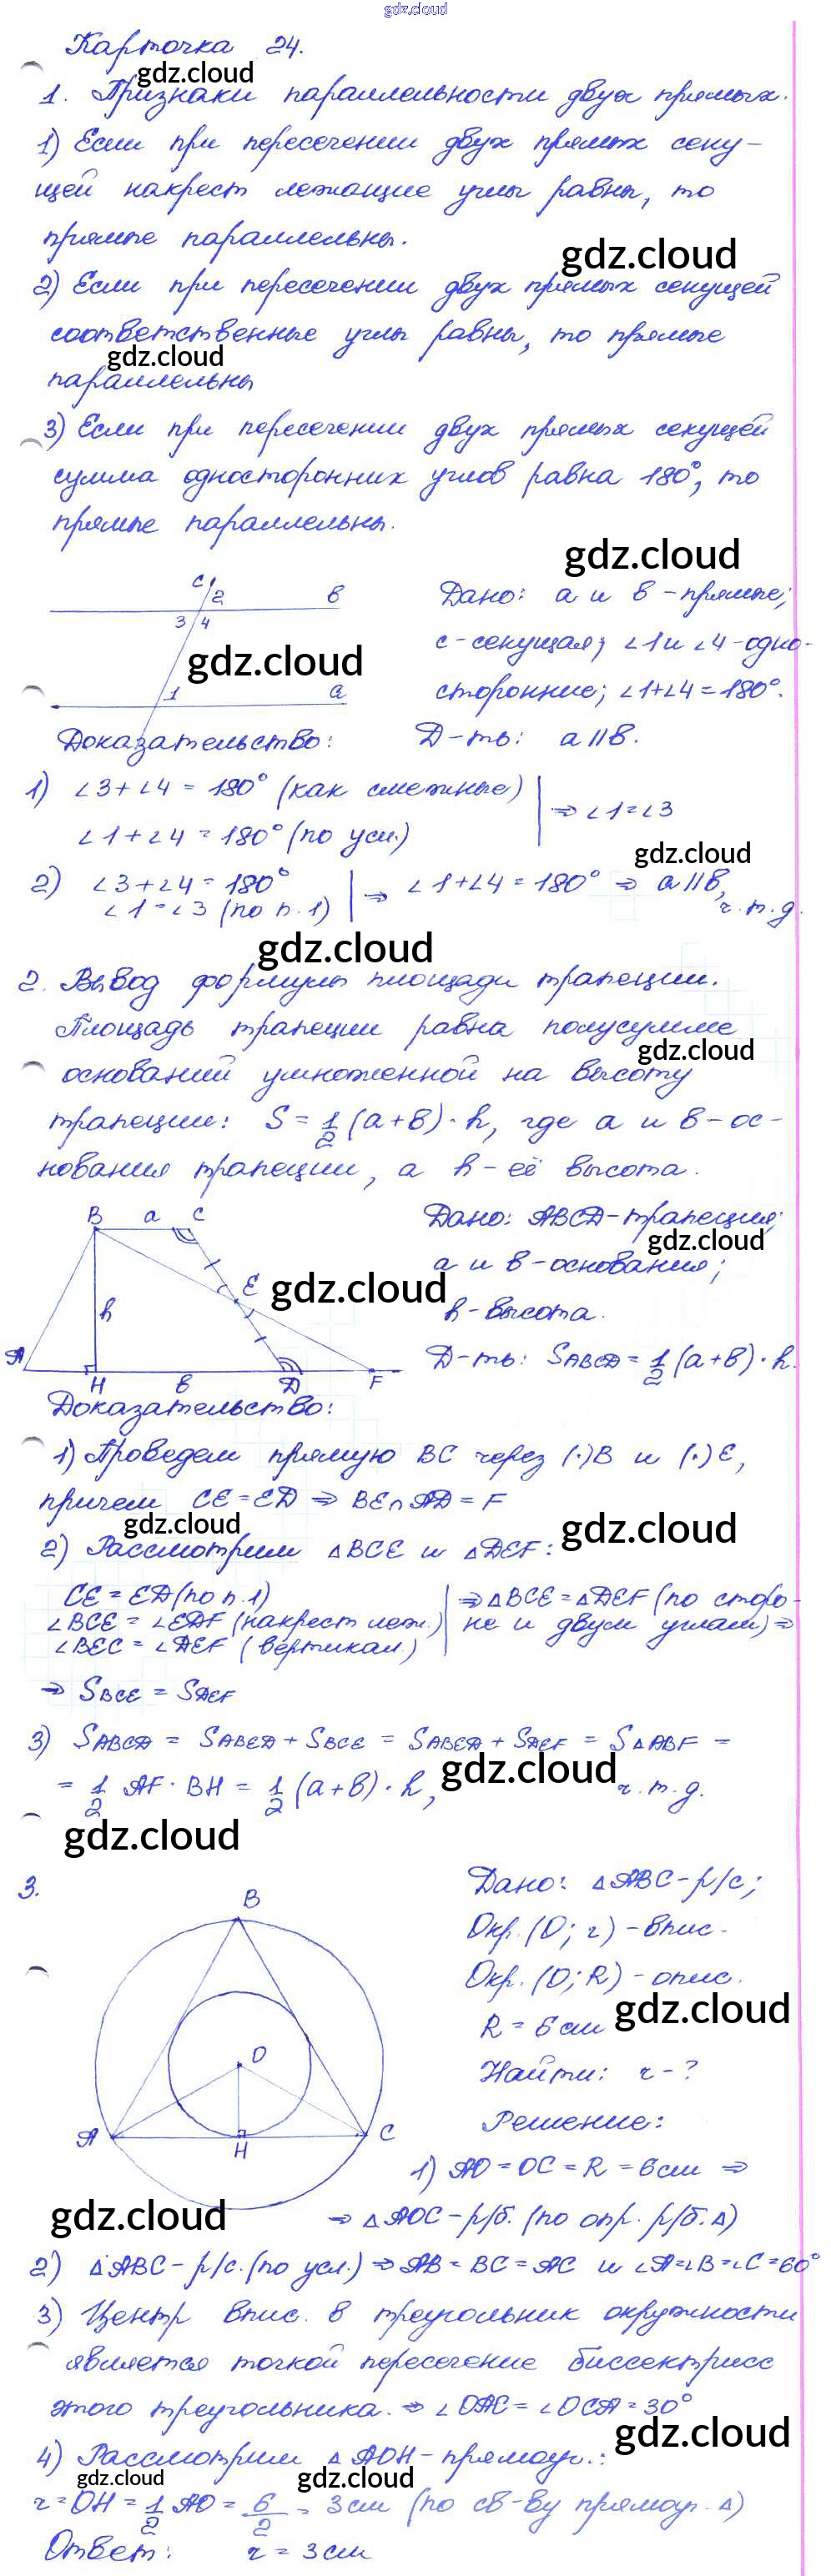 gdz.cloud
Карточка 24.
gdz.cloud
1. Признаки параллельности двух прямых.
1) Если при пересечении двух прямых секу-
щей накрест лежащие углы равны, то
прямые параллельны.
gdz.cloud
2) Если при пересечении двух прямых секущей
соответственные углы равны, то прямые
gdz.cloud
параллельны
3) Если при пересечении двух прямых секущей
сумма односторонних углов равна 180°, то
прямые параллельны.
gdz.cloud
c 2 b
3 4
gdz.cloud
1 a
Дано: a и b - прямые;
c - секущая; ∠1 и ∠4 - одно-
сторонние; ∠1+∠4 = 180°.
Д-ть: a || b.
Доказательство:
1) ∠3+∠4 = 180° (как смежные) | ⇒ ∠1=∠3
∠1+∠4 = 180° (по усл.)
gdz.cloud
2) ∠3+∠4 = 180° | ⇒ ∠1+∠4 = 180° ⇒ a || b,
∠1=∠3 (по п. 1) ч.т.д.
gdz.cloud
2. Вывод формулы площади трапеции.
Площадь трапеции равна полусумме
gdz.cloud
оснований умноженной на высоту
трапеции: S = 1/2 (a+b) · h, где a и b - ос-
нования трапеции, а h - её высота.
B a C
E
gdz.cloud
h
A H b D F
Дано: ABCD - трапеция;
gdz.cloud
a и b - основания;
h - высота.
Д-ть: SABCD = 1/2 (a+b) · h.
Доказательство:
1) Проведем прямую BC через (·)B и (·)E,
причем CE = ED ⇒ BE∩AD = F
gdz.cloud
gdz.cloud
2) Рассмотрим △BCE и △DEF:
CE = ED (по п. 1) | ⇒ △BCE = △DEF (по сторо-
∠BCE = ∠EDF (накрест леж.) | не и двум углам) ⇒
∠BEC = ∠DEF (вертикал.)
⇒ SBCE = SDEF
3) SABCD = SABED + SBCE = SABED + SDEF = S△ABF =
gdz.cloud
= 1/2 AF · BH = 1/2 (a+b) · h, ч.т.д.
gdz.cloud
3.
B
O
A H C
Дано: △ABC - р/с;
Окр. (O; r) - впис.
Окр. (O; R) - опис.
gdz.cloud
R = 6 см
Найти: r - ?
Решение:
1) AO = OC = R = 6 см ⇒
gdz.cloud
⇒ △AOC - р/б. (по опр. р/б. △)
2) △ABC - р/с. (по усл.) ⇒ AB = BC = AC и ∠A=∠B=∠C=60°
3) Центр впис. в треугольник окружности
является точкой пересечение биссектрисс
этого треугольника. ⇒ ∠OAC = ∠OCA = 30°
gdz.cloud
4) Рассмотрим △AOH - прямоуг.:
gdz.cloud
gdz.cloud
r = OH = 1/2 AO = 6/2 = 3 см (по св-ву прямоуг. △)
Ответ: r = 3 см